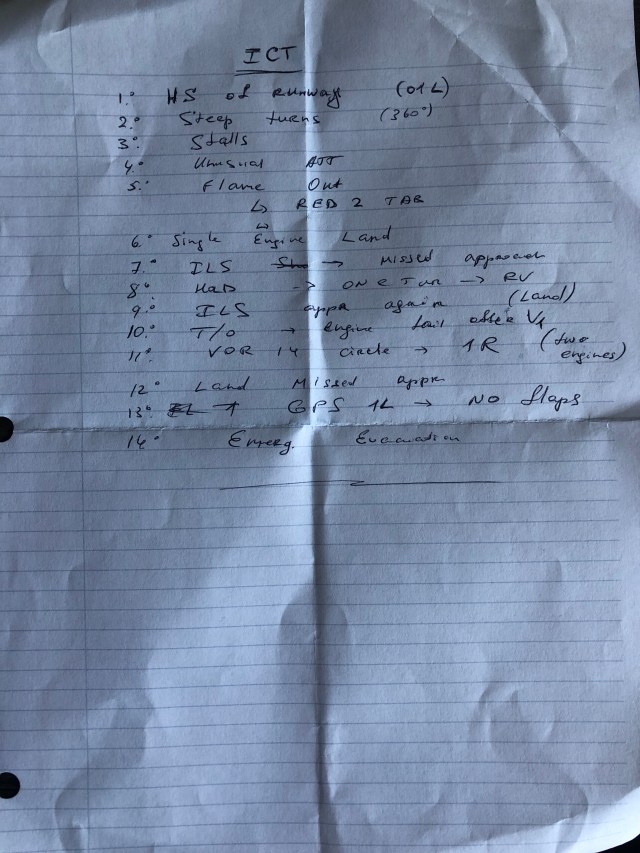 ICT
1.° HS of runway (01L)
2.° Steep turns (360°)
3.° Stalls
4.° Unusual ATT
5.° Flame Out
↳ RED 2 TAB
6.° Single Engine Land
7.° ILS → Missed approach
8.° HOLD → ONE Turn → RV
9.° ILS appr again (Land)
10.° T/O → engine fail after V1
11.° VOR 14 circle → 1R (two engines)
12.° Land Missed appr
13.° GPS 1L → NO flaps
14.° Emerg. Evacuation